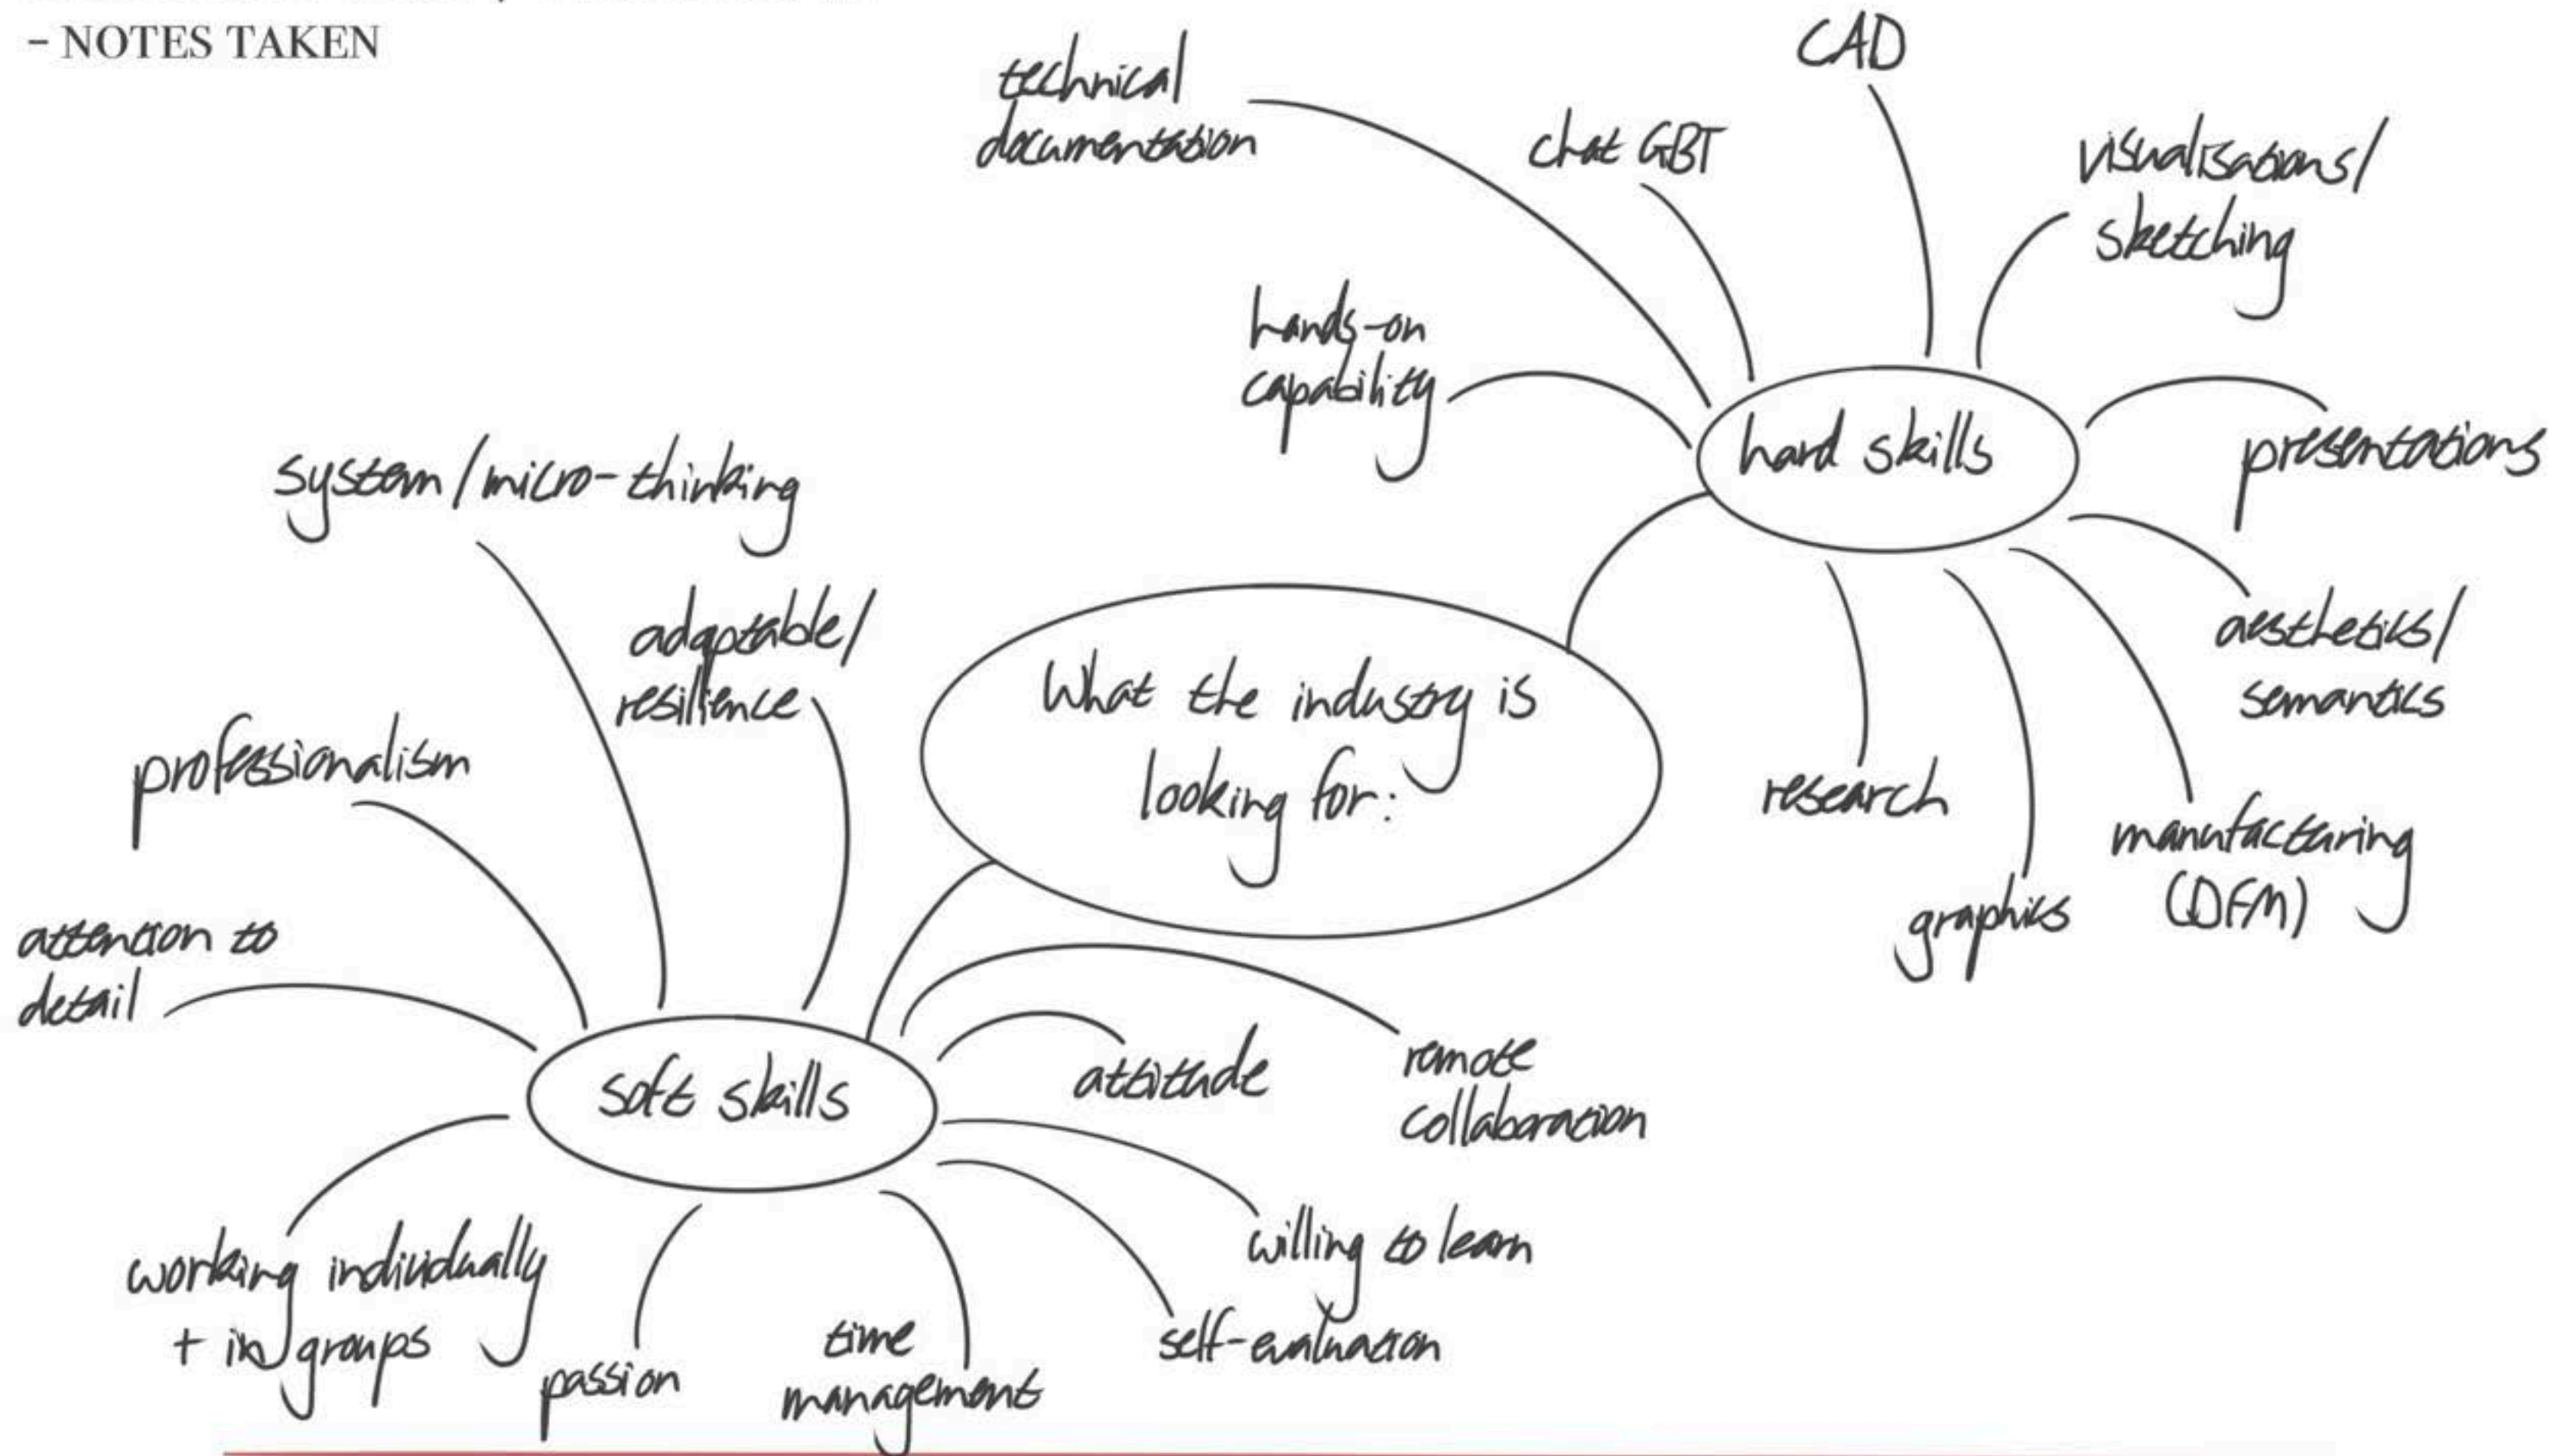 - NOTES TAKEN
What the industry is
looking for:
hard skills
technical
documentation
chat GBT
CAD
visualisations/
sketching
hands-on
capability
presentations
aesthetics/
semantics
manufacturing
(DFM)
graphics
research
soft skills
system/micro-thinking
adaptable/
resilience
professionalism
attention to
detail
working individually
+ in groups
passion
time
management
self-evaluation
willing to learn
attitude
remote
collaboration